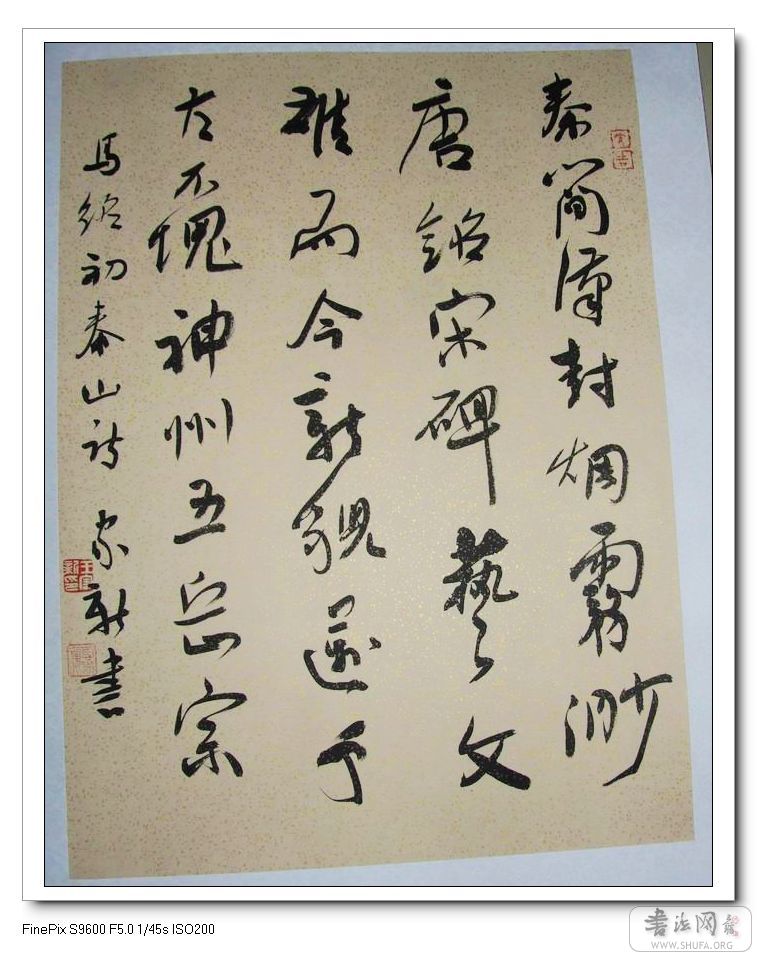 秦簡漢封烟霧渺
唐銘宋碑藝文
雄而今新貌千
古不愧神州五岳宗
馬紹初泰山詩 家新書
FinePix S9600 F5.0 1/45s ISO200
书法网
WWW.SHUFA.ORG